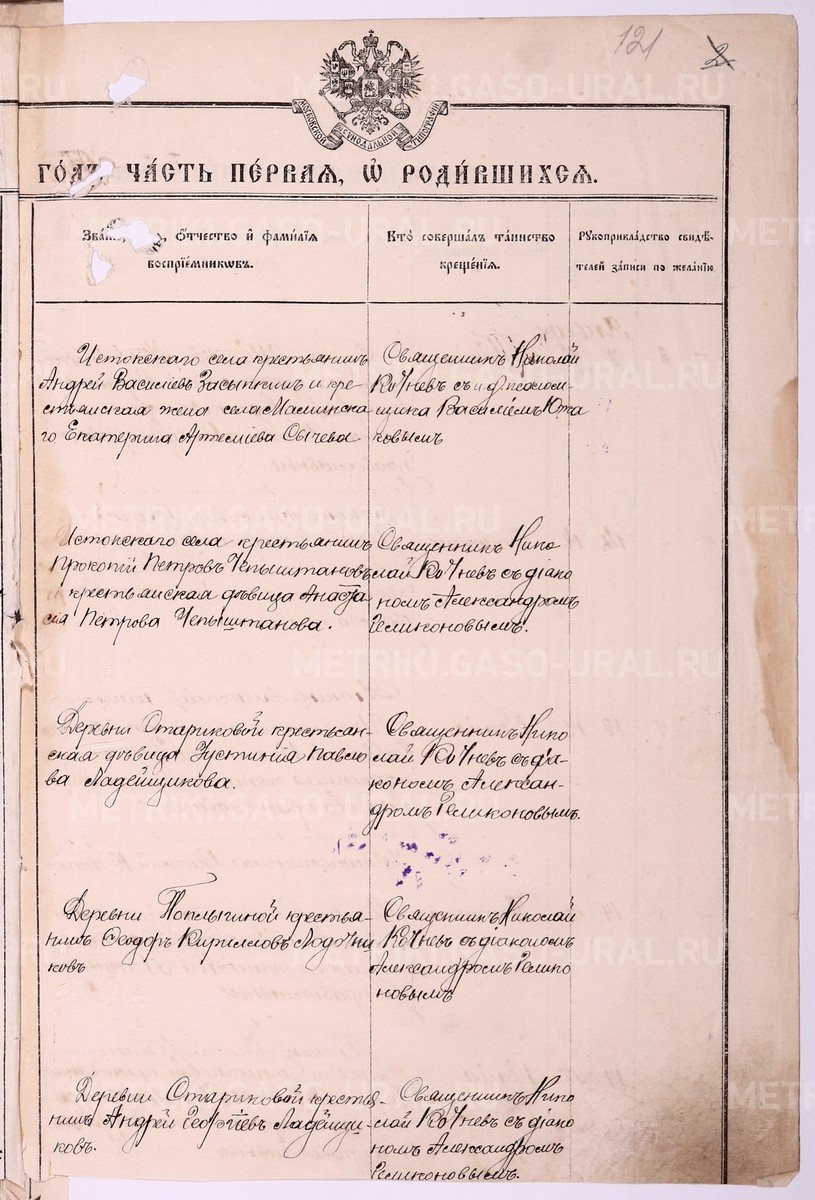 121 2
МОСКОВСКОЙ СѴНОДАЛЬНОЙ ТИПОГРАФІИ
ГО́ДЪ, ЧА́СТЬ ПЕ́РВАЯ, Ѽ РОДИ́ВШИХСЯ.
Зва́ / ѻ҆́тчество и҆ фами́лїѧ
воспрїе́мниковъ.
Кто̀ соверша́лъ та́инство
креще́нїѧ.
Рꙋкоприкла́дство свидѣ́-
телей за́писи по жела́нїю
Истокскаго села крестьянинъ
Андрей Василіевъ Засыпкинъ и кре-
стьянская жена села Маминска-
го Екатерина Артеміева Сычева
Священникъ Николай
Кочневъ съ и. д. псалом-
щика Василіемъ Южа
ковымъ
Истокскаго села крестьянинъ
Прокопій Петровъ Чепыштановъ
крестьянская дѣвица Анаста
сія Петрова Чепыштанова.
Священникъ Нико
лай Кочневъ съ діако
номъ Александромъ
Геликоновымъ.
Деревни Стариковой крестьян-
ская дѣвица Іустинія Павло
ва Ладейщикова.
Священникъ Нико
лай Кочневъ съ діа-
кономъ Алексан-
дромъ Геликоновымъ.
Деревни Топлыгиной крестья-
нинъ Ѳеодоръ Кирилловъ Лодочни
ковъ
Священникъ Николай
Кочневъ съ діакономъ
Александромъ Гелико
новымъ
Деревни Стариковой крестья-
нинъ Андрей Георгіевъ Ладейщи-
ковъ.
Священникъ Нико
лай Кочневъ съ діако
номъ Александромъ
Геликоновымъ.
METRIKI.GASO-URAL.RU